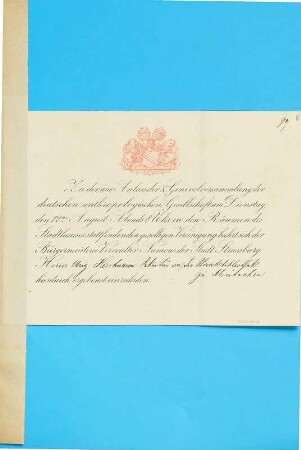 Zu der aus Anlass der Generalversammlung der
deutschen anthropologischen Gesellschaft am Dienstag
den 12ten August Abends 8 Uhr in den Räumen des
Stadthauses stattfindenden geselligen Vereinigung beehrt sich der
Bürgermeisterei Verwalter Namens der Stadt Strassburg
Herrn Hartmann an der
zu München
hierdurch ergebenst einzuladen.